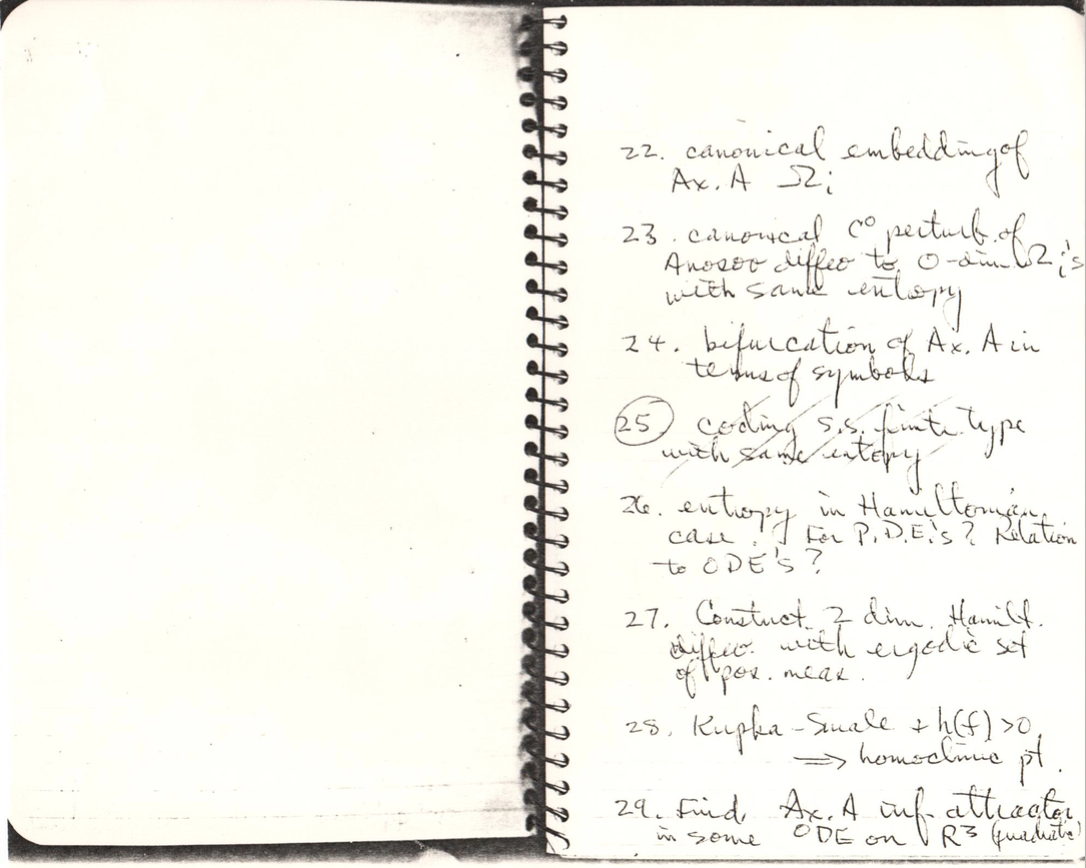 22. canonical embedding of
Ax. A Ωi
23. canonical C⁰ perturb. of
Anosov diffeo to 0-dim Ωi's
with same entropy
24. bifurcation of Ax. A in
terms of symbols
25 coding s.s. finite type
with same entopy
26. entropy in Hamiltonian
case. For P.D.E.'s? Relation
to ODE's?
27. Construct 2 dim. Hamilt.
diffeo. with ergodic set
of pos. meas.
28. Kupka-Smale + h(f) >0
⟹ homoclinic pt.
29. Find Ax. A inf. attractor
in some ODE on R³ (quadratic)